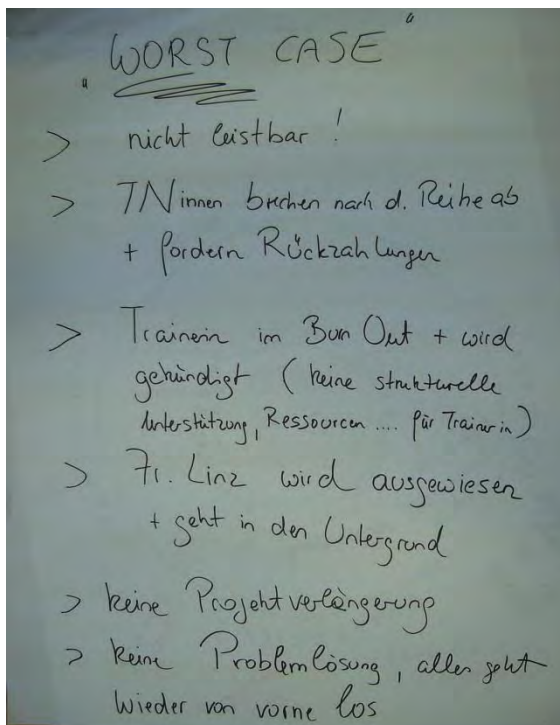 „WORST CASE"
> nicht leistbar!
> TNinnen brechen nach d. Reihe ab
+ fordern Rückzahlungen
> Trainerin im Burn Out + wird
gekündigt (keine strukturelle
Unterstützung, Ressourcen .... für Trainerin)
> Fr. Linz wird ausgewiesen
+ geht in den Untergrund
> keine Projektverlängerung
> keine Problemlösung, alles geht
wieder von vorne los